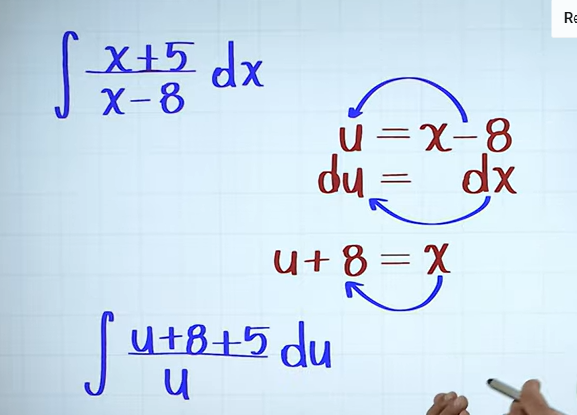 Re
∫ x+5 / x-8 dx
u = x-8
du = dx
u+8 = x
∫ u+8+5 / u du